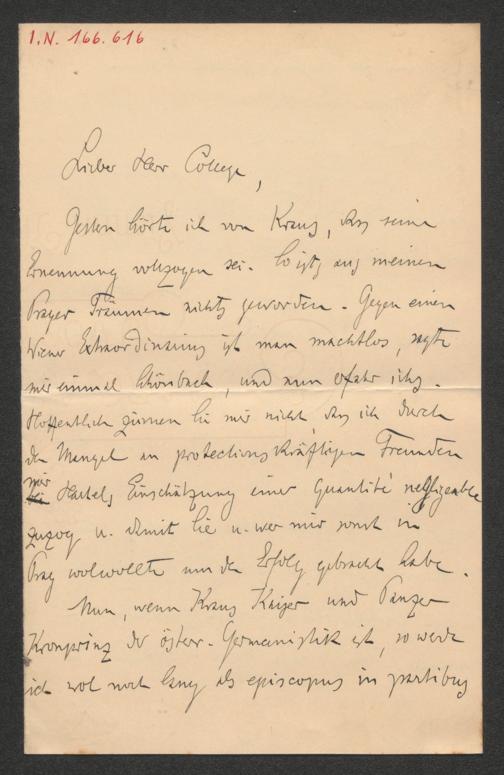 I.N. 166.616
Lieber Herr College,
Gestern hörte ich von Kraus, dass seine
Ernennung vollzogen sei. So ists aus meinen
Prager Träumen nichts geworden. Gegen einen
Wiener Extraordinarius ist man machtlos, sagte
mir einmal Schönbach, und nun erfahr ichs.
Hoffentlich zürnen Sie mir nicht, dass ich durch
den Mangel an protectionskräftigen Freunden
mir Hartels Einschätzung einer Quantité negligeable
zuzog u. damit Sie u. wer mir sonst in
Prag wolwollte um den Erfolg gebracht habe.
Nun, wenn Kraus Kaiser und Panzer
Kronprinz der österr. Germanistik ist, so werde
ich wol noch lang als episcopus in partibus